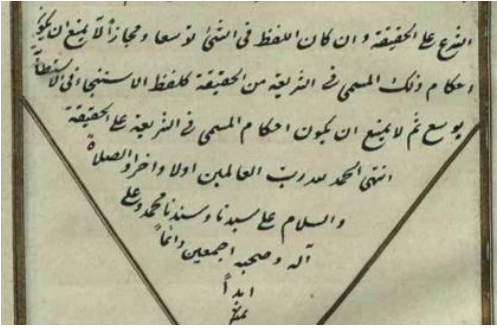 الشرع على الحقيقة وان كان اللفظ فى الشئ توسعا ومجازا لا يمنع ان يكون
احكام ذلك المسمى فى الشريعة من الحقيقة كلفظ الاستنجا فى الاستطابة
يوسع ثم لا يمنع ان يكون احكام المسمى فى الشريعة على الحقيقة
انتهى الحمد لله رب العالمين اولا واخرا والصلاة
والسلام على سيدنا وسندنا محمد وعلى
آله وصحبه اجمعين دائماً
ابداً
تمت